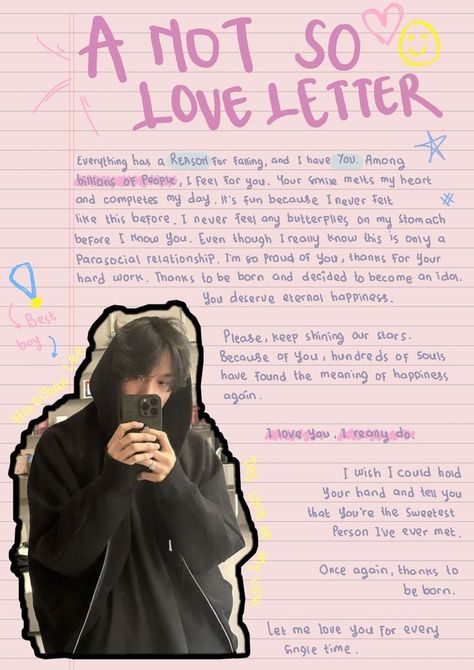 A NOT SO
LOVE LETTER
Everything has a REASON for falling, and I have YOU. Among
billions of people, I feel for you. Your smile melts my heart
and completes my day. It's fun because I never felt
like this before. I never feel any butterflies on my stomach
before I know you. Even though I really know this is only a
Parasocial relationship. I'm so proud of you, thanks for your
hard work. Thanks to be born and decided to become an idol.
You deserve eternal happiness.
Best
boy
Haechan Lee
Please, keep shining our stars.
Because of you, hundreds of souls
have found the meaning of happiness
again.
I love you, I really do.
The love of My life
I wish I could hold
your hand and tell you
that you're the sweetest
Person I've ever met.
Once again, thanks to
be born.
Let me love you for every
single time.